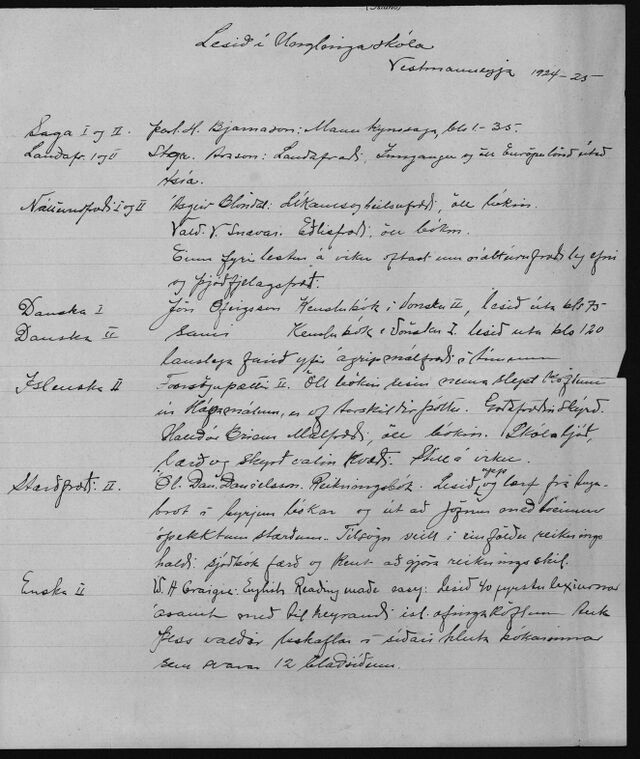 Lesið í Unglingaskóla
Vestmannaeyja 1924-25
Saga I og II. Þorl. H. Bjarnason: Mannkynssaga, bls 1-35.
Landafr. I og II Stegr. Arason: Landafræði, Inngangur og öll Európulönd út að
Asía.
Náttúrufræði I og II Ásgeir Blöndal: Líkams og heilsufræði, öll bókin.
Vald. V. Snævar. Eðlisfræði, öll bókin.
Einn fyrirlestur á viku oftast um náttúrufræðileg efni
og þjóðfjelagsfræði.
Danska I Jón Ófeigsson Kenslubók í Dönsku II, lesið úta bls 75
Danska II sami Kenslubók í Dönsku I. lesið úta bls 120
lauslega farið yfir ágrip málfræði í tímum
Íslenska II Forsöguþættir II. Öll bókin lesin nema slept köflum
úr Hávamálum, er of torskildir þóttu. Goðafræðin skýrð.
Halldór Briem Málfræði, öll bókin. Skólaljóð,
lærð og skýrð valin kvæði. Stíll á viku.
Stærðfræði: II. Ól. Dan. Daníelsson. Reikningsbók. Lesið og lærð frá
brot í byrjun bókar og út að Jöfnur með einum
óþekktum stærðum. Tilsögn veitt í einföldu reiknings
haldi: sjóðbók færð og kent að gjöra reikningsskil.
Enska II W. A Craigie: English Reading made easy: Lesið 40 fyrstu lexiurnar
ásamt með tilheyrandi ísl. æfingaköflum. Auk
þess valdir leskaflar í síðari hluta bókarinnar
sem svarar 12 blaðsíðum.